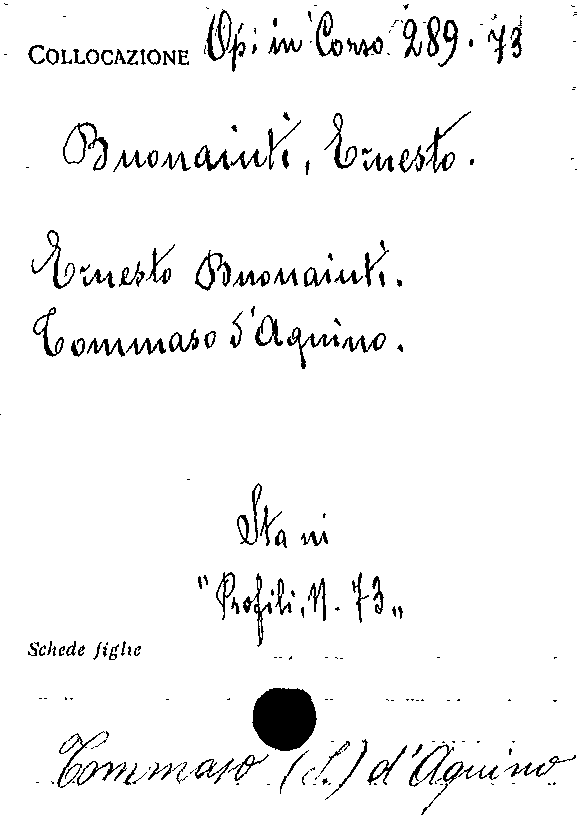 COLLOCAZIONE Op. in Corso 289. 73
Buonaiuti, Ernesto.
Ernesto Buonaiuti.
Tommaso d'Aquino.
Sta in
"Profili, N. 73„
Schede figlie
Tommaso (S.) d'Aquino